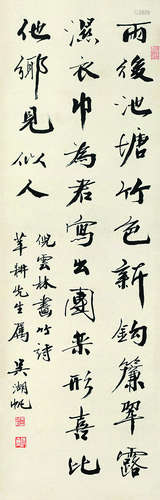 雨後池塘竹色新鈎簾翠露
濕衣巾為君寫出團欒形喜比
他鄉見似人
倪雲林畫竹詩
莘耕先生属 吳湖帆